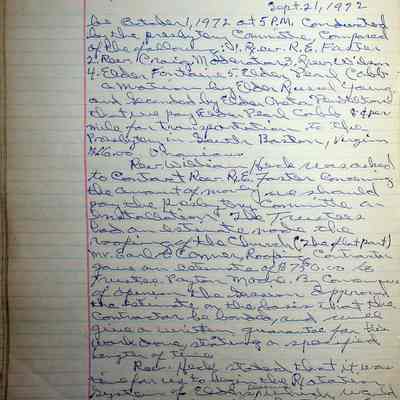 Sept. 21, 1972
be October 1, 1972 at 5 P.M. Conducted
by the presbytery Committee Composed
of the following: 1. Rev. R. E. Foster
2. Rev. Craig, Moderator 3. Rev. Wilson
4. Elder Fontaine 5. Elder Pearl Cobb
A motion by Elder Young
and Seconded by Elder
that we pay Elder Pearl Cobb per
mile for transportation to the
Presbytery in South Boston, Virginia
Rev. William Heck was asked
to Contact Rev. R. E. Foster Concerning
the amount of money we should
pay the Presbytery Committee on
Installation. The Trustees
had an estimate made the
roofing of the Church (The flat part)
Mr. Earl O'Conner, Roofing Contractor
gave an estimate of $750.00 to
Trustee
of Spencer. The Session Approved
the estimate on the basis that the
Contractor be bonded, and will
give a written guarantee for the
work done, stating a specified
length of time
Rev. Heck stated that it was
time for us to begin the Rotation
System of Elders, which would